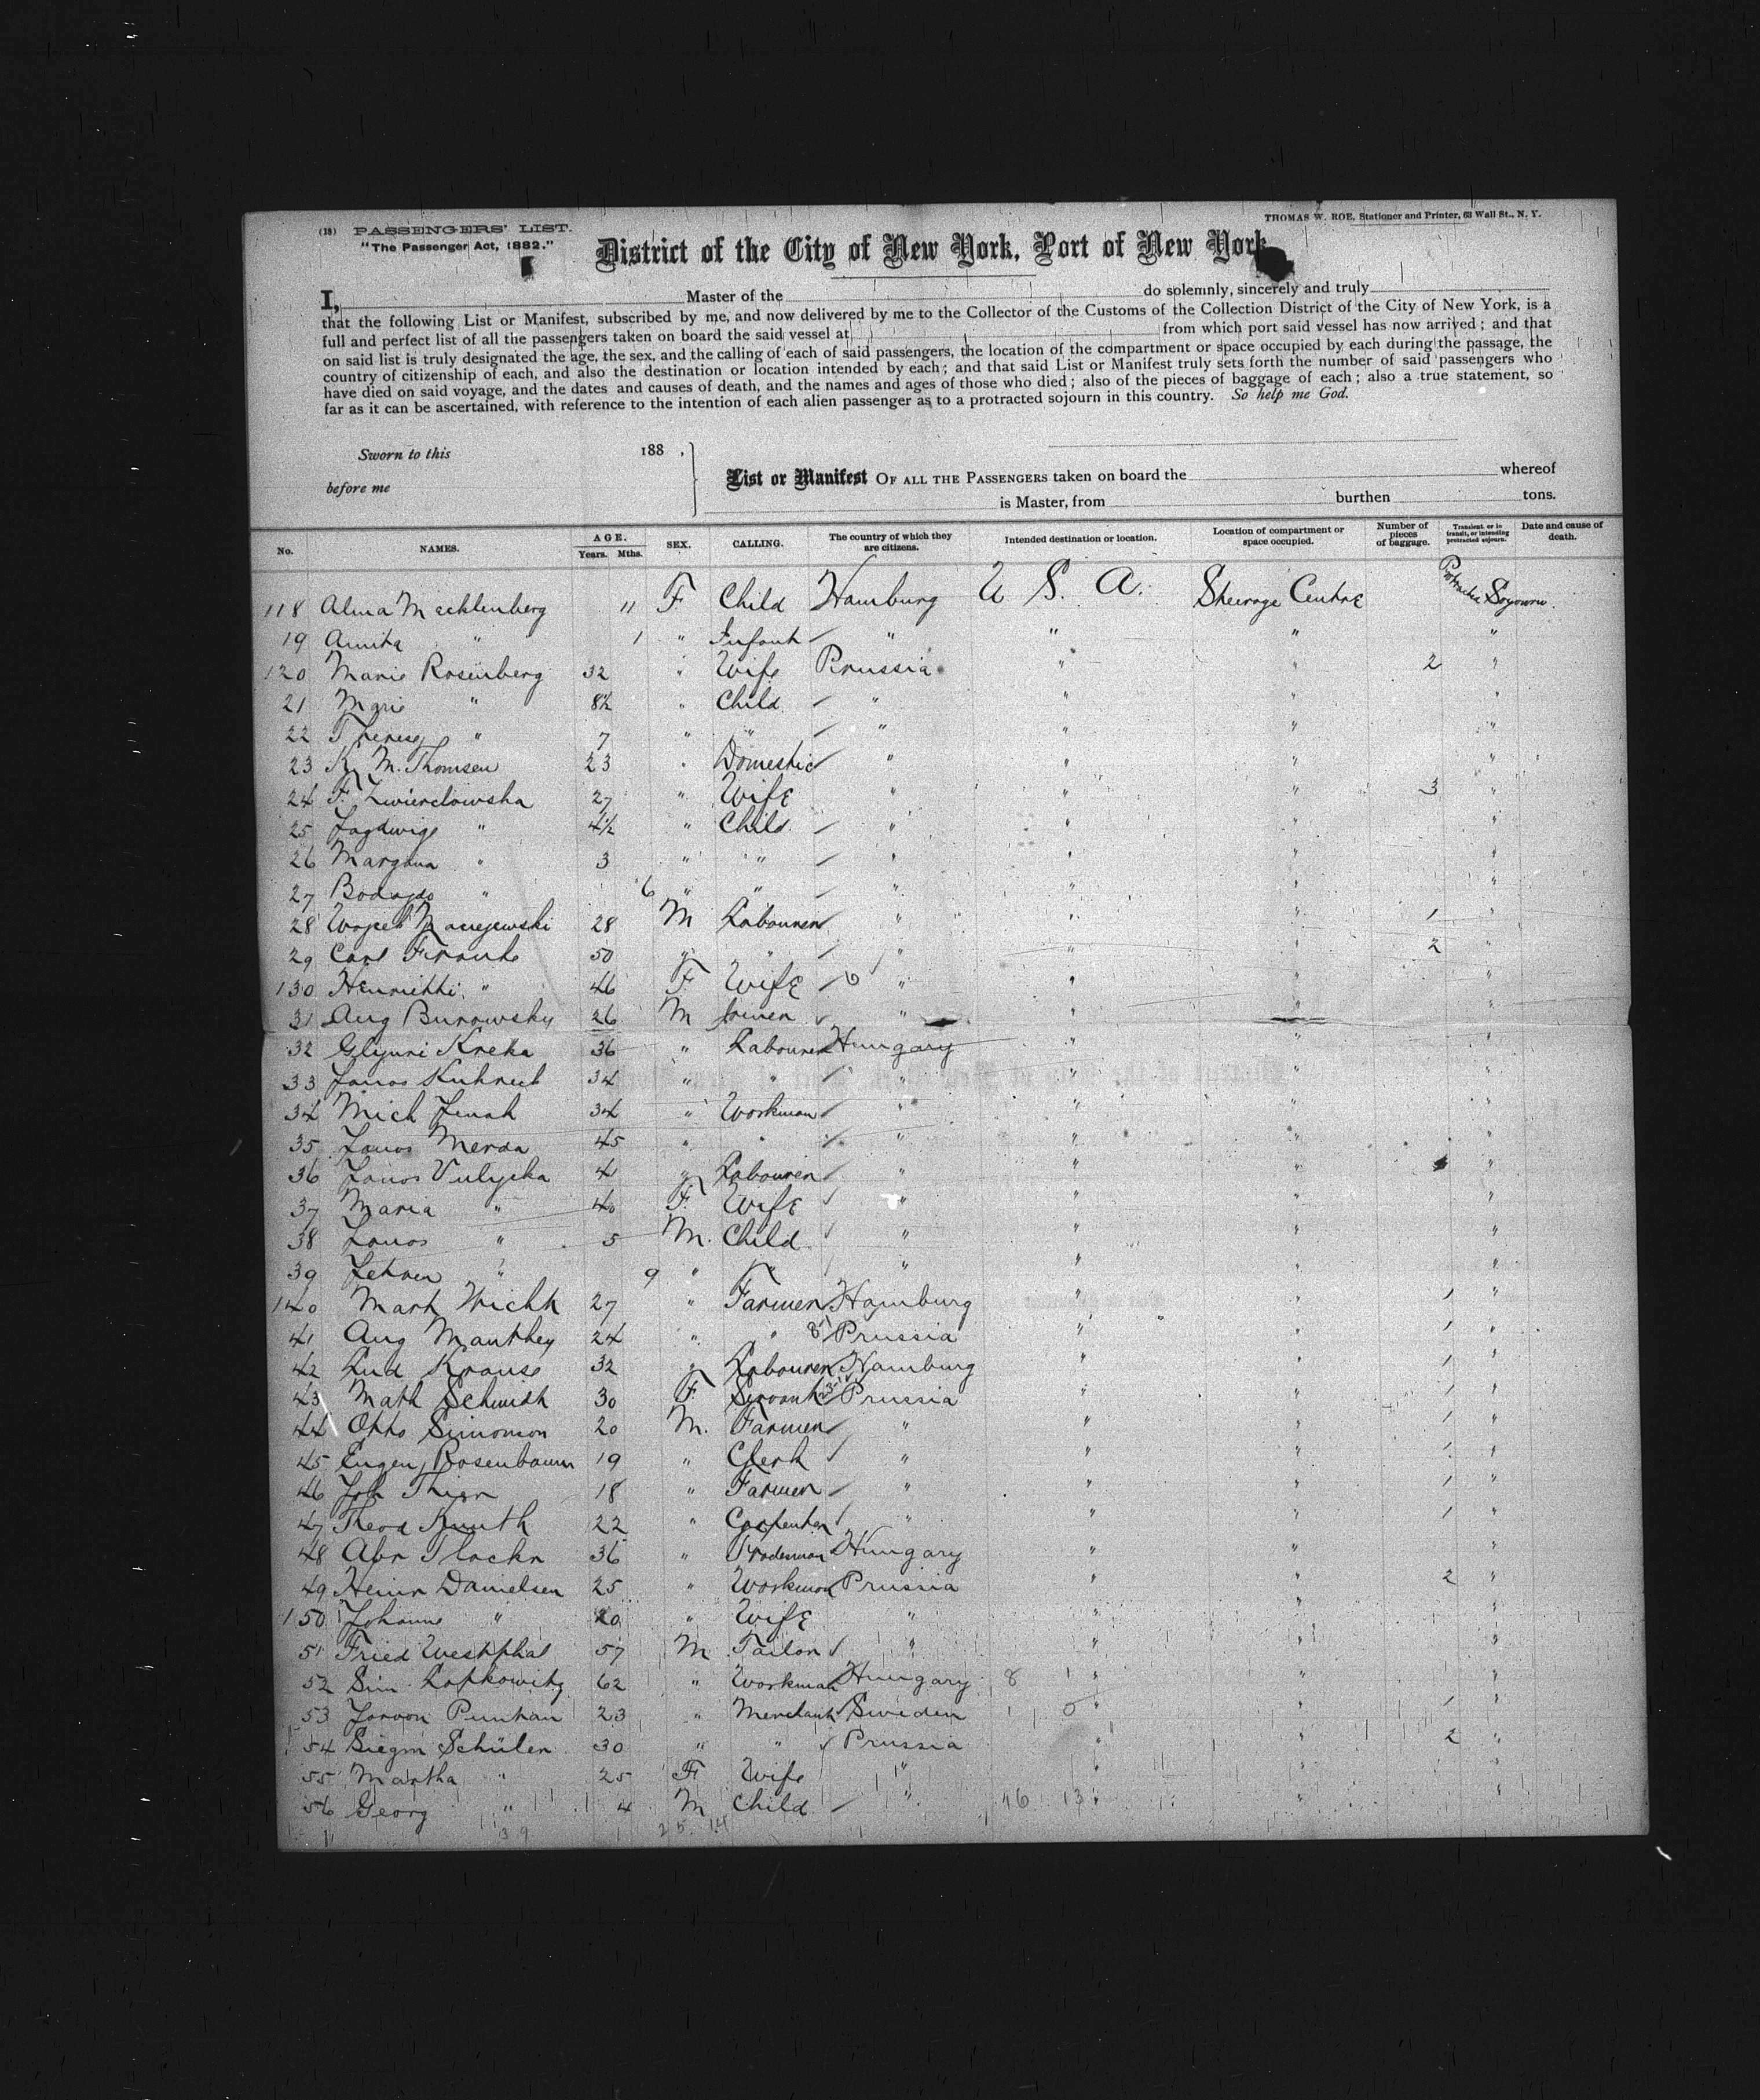 (18) PASSENGERS' LIST.
THOMAS W. ROE, Stationer and Printer, 63 Wall St., N. Y.
"The Passenger Act, 1882."
District of the City of New York, Port of New York
I, Master of the do solemnly, sincerely and truly
that the following List or Manifest, subscribed by me, and now delivered by me to the Collector of the Customs of the Collection District of the City of New York, is a
full and perfect list of all the passengers taken on board the said vessel at from which port said vessel has now arrived; and that
on said list is truly designated the age, the sex, and the calling of each of said passengers, the location of the compartment or space occupied by each during the passage, the
country of citizenship of each, and also the destination or location intended by each; and that said List or Manifest truly sets forth the number of said passengers who
have died on said voyage, and the dates and causes of death, and the names and ages of those who died; also of the pieces of baggage of each; also a true statement, so
far as it can be ascertained, with reference to the intention of each alien passenger as to a protracted sojourn in this country. So help me God.
Sworn to this 188 ,
before me
List or Manifest OF ALL THE PASSENGERS taken on board the whereof
is Master, from burthen tons.
No. NAMES. AGE. Years. Mths. SEX. CALLING. The country of which they are citizens. Intended destination or location. Location of compartment or space occupied. Number of pieces of baggage. Transient, or in transit, or intending protracted sojourn. Date and cause of death.
118 Alma Mecklenberg 11 F Child Hamburg U S. A. Steerage Centre
19 Anita " 1 " Infant " " " "
120 Marie Rosenberg 32 " Wife Prussia " " 2 "
21 Marie " 8½ " Child " " " "
22 Therese " 7 " " " " " "
23 K. M. Thomsen 23 " Domestic " " " "
24 F. 27 " Wife " " " 3 "
25 " 4½ " Child " " " "
26 " 3 " " " " " "
27 " 6 " " " " " "
28 28 M Labourer " " " 1 "
29 Carl Franke 50 " " " " " 2 "
130 " 46 F Wife " " " "
31 Aug Burowsky 26 M " " " "
32 Kreka 36 " Labourer Hungary " " "
33 Janos 34 " " " " " "
34 Mich 34 " Workman " " " "
35 Janos Merda 45 " " " " " "
36 Janos 41 " Labourer " " " "
37 Maria " 40 F Wife " " " "
38 Janos " 5 M. Child " " " "
39 " 9 " " " " " "
140 Mark 27 " Farmer Hamburg " " 1 "
41 Aug Manthey 24 " " Prussia " " 1 "
42 Lud Krause 32 " Labourer Hamburg " " 1 "
43 Math Schmidt 30 F Servant Prussia " " 1 "
44 Otto Simonson 20 M. Farmer " " " 1 "
45 Eugen Rosenbaum 19 " Clerk " " " 1 "
46 Joh Thier 18 " Farmer " " " 1 "
47 Theod Knuth 22 " Carpenter " " " 1 "
48 Abr 36 " Tradesman Hungary " " "
49 Heinr Danielsen 25 " Workman Prussia " " 2 "
150 Johanne " 20 " Wife " " " "
51 Fried Westphal 57 M Tailor " " " "
52 Sim Lopkowitz 62 " Workman Hungary 8 1 " " "
53 23 " Merchant Sweden " " 1 "
54 Siegm Schüler 30 " " Prussia " " 2 "
55 Martha " 25 F Wife " " "
56 Georg " 4 M Child " 16 13 " " "
39 25 14